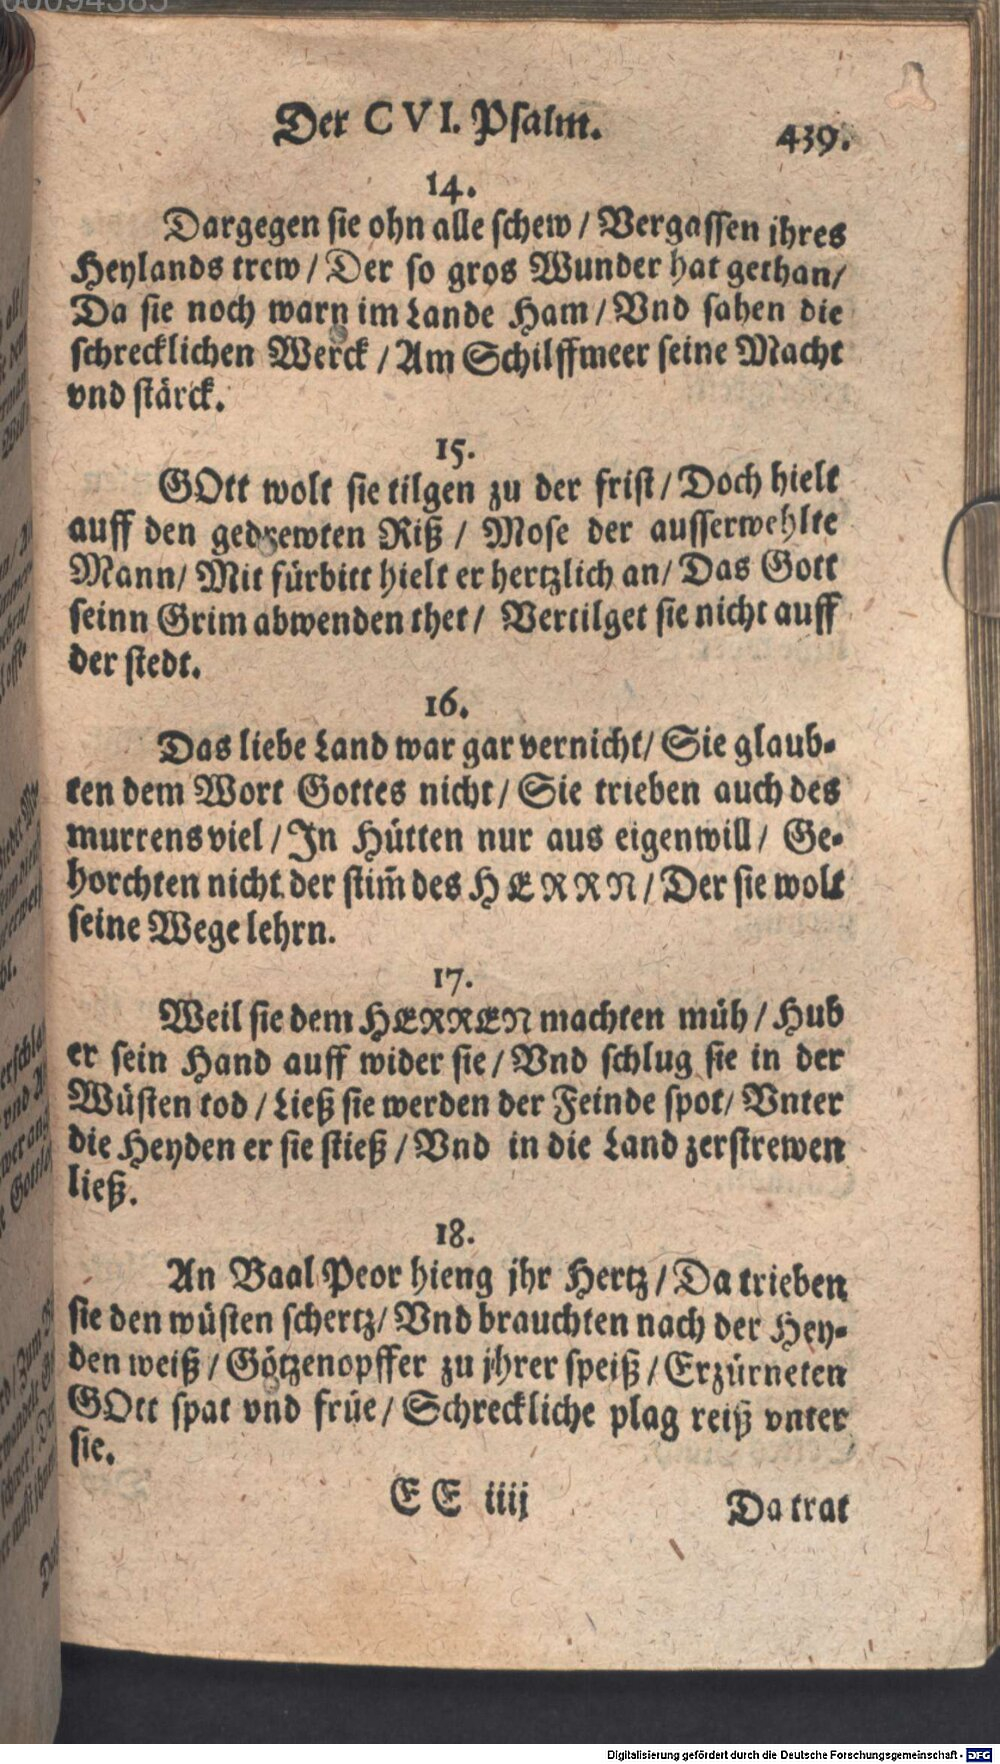 Der CVI. Psalm. 439.
14.
Dargegen sie ohn alle schew / Vergassen jhres
Heylands trew / Der so gros Wunder hat gethan /
Da sie noch warn im Lande Ham / Vnd sahen die
schrecklichen Werck / Am Schilffmeer seine Macht
vnd stärck.
15.
GOtt wolt sie tilgen zu der frist / Doch hielt
auff den gedrewten Riß / Mose der ausserwehlte
Mann / Mit fürbitt hielt er hertzlich an / Das Gott
seinn Grim abwenden thet / Vertilget sie nicht auff
der stedt.
16.
Das liebe Land war gar vernicht / Sie glaub-
ten dem Wort Gottes nicht / Sie trieben auch des
murrens viel / In Hütten nur aus eigenwill / Ge-
horchten nicht der stim̄ des HERRN / Der sie wolt
seine Wege lehrn.
17.
Weil sie dem HERREN machten müh / Hub
er sein Hand auff wider sie / Vnd schlug sie in der
Wüsten tod / Ließ sie werden der Feinde spot / Vnter
die Heyden er sie stieß / Vnd in die Land zerstrewen
ließ.
18.
An Baal Peor hieng jhr Hertz / Da trieben
sie den wüsten schertz / Vnd brauchten nach der Hey-
den weiß / Götzenopffer zu jhrer speiß / Erzürneten
GOtt spat vnd früe / Schreckliche plag reiß vnter
sie.
EE iiij Da trat
Digitalisierung gefördert durch die Deutsche Forschungsgemeinschaft - DFG